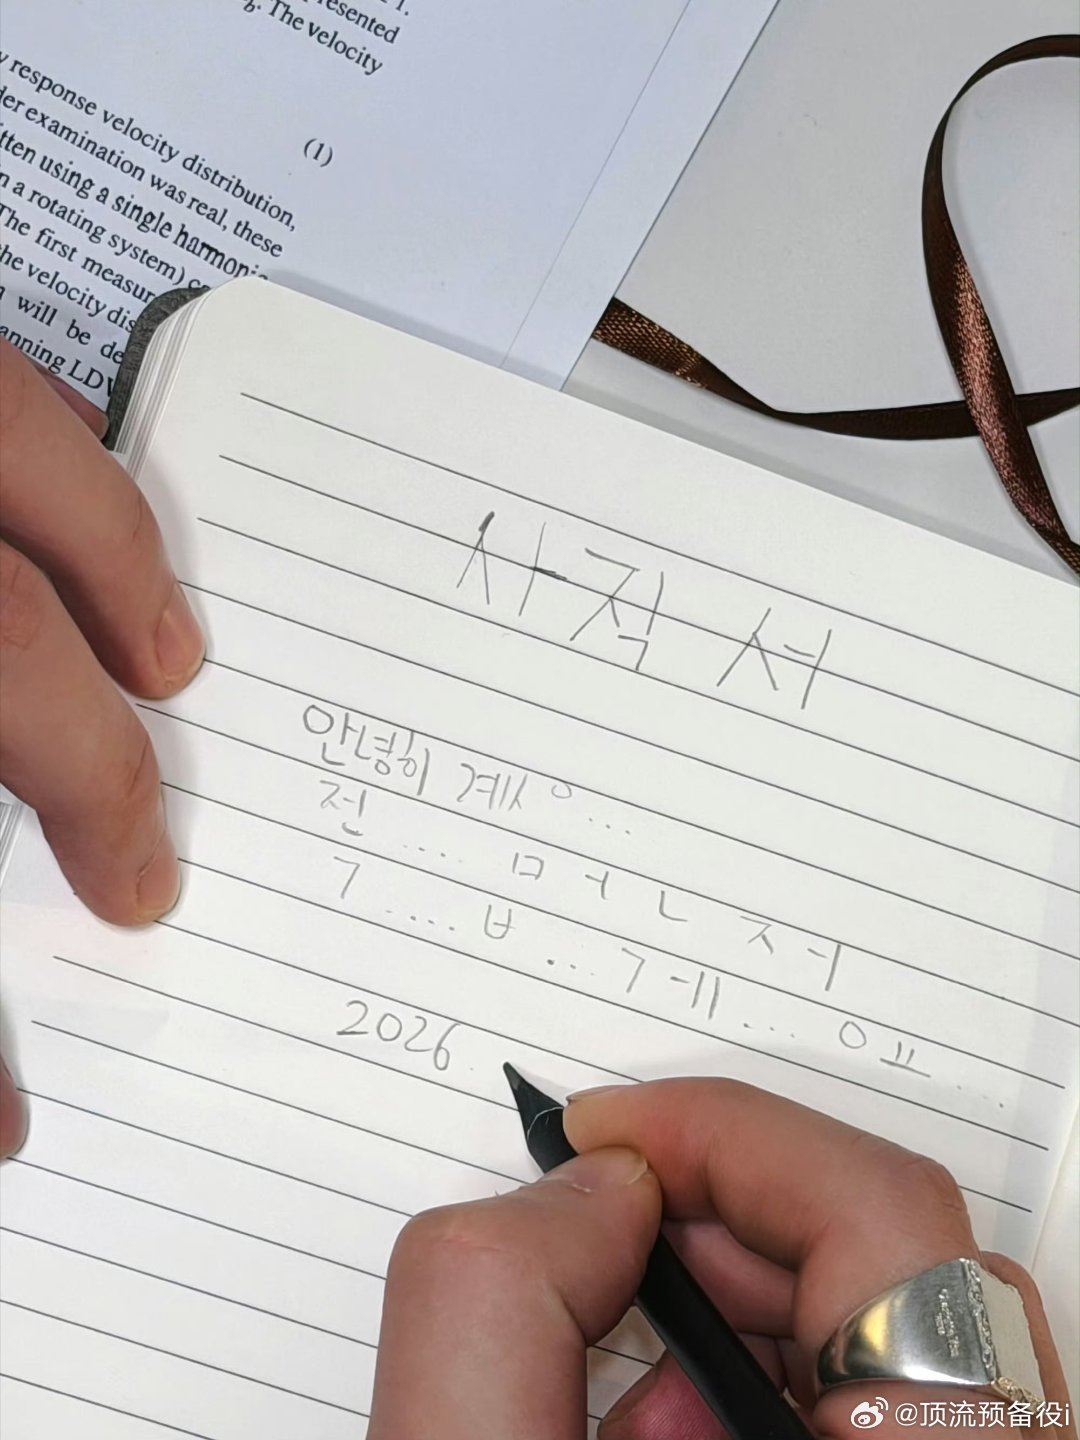 resented
g. The velocity
y response velocity distribution,
der examination was real, these
tten using a single harmonic
n a rotating system) c
The first measur
the velocity dis
will be de
anning LDV
(1)
사직서
안녕히 계시 ㅇ...
전 .... ㅁ ㅓ ㄴ 저
ㄱ .... ㅂ ... ㄱ ㅔ ... 요 ...
2026.
@顶流预备役i